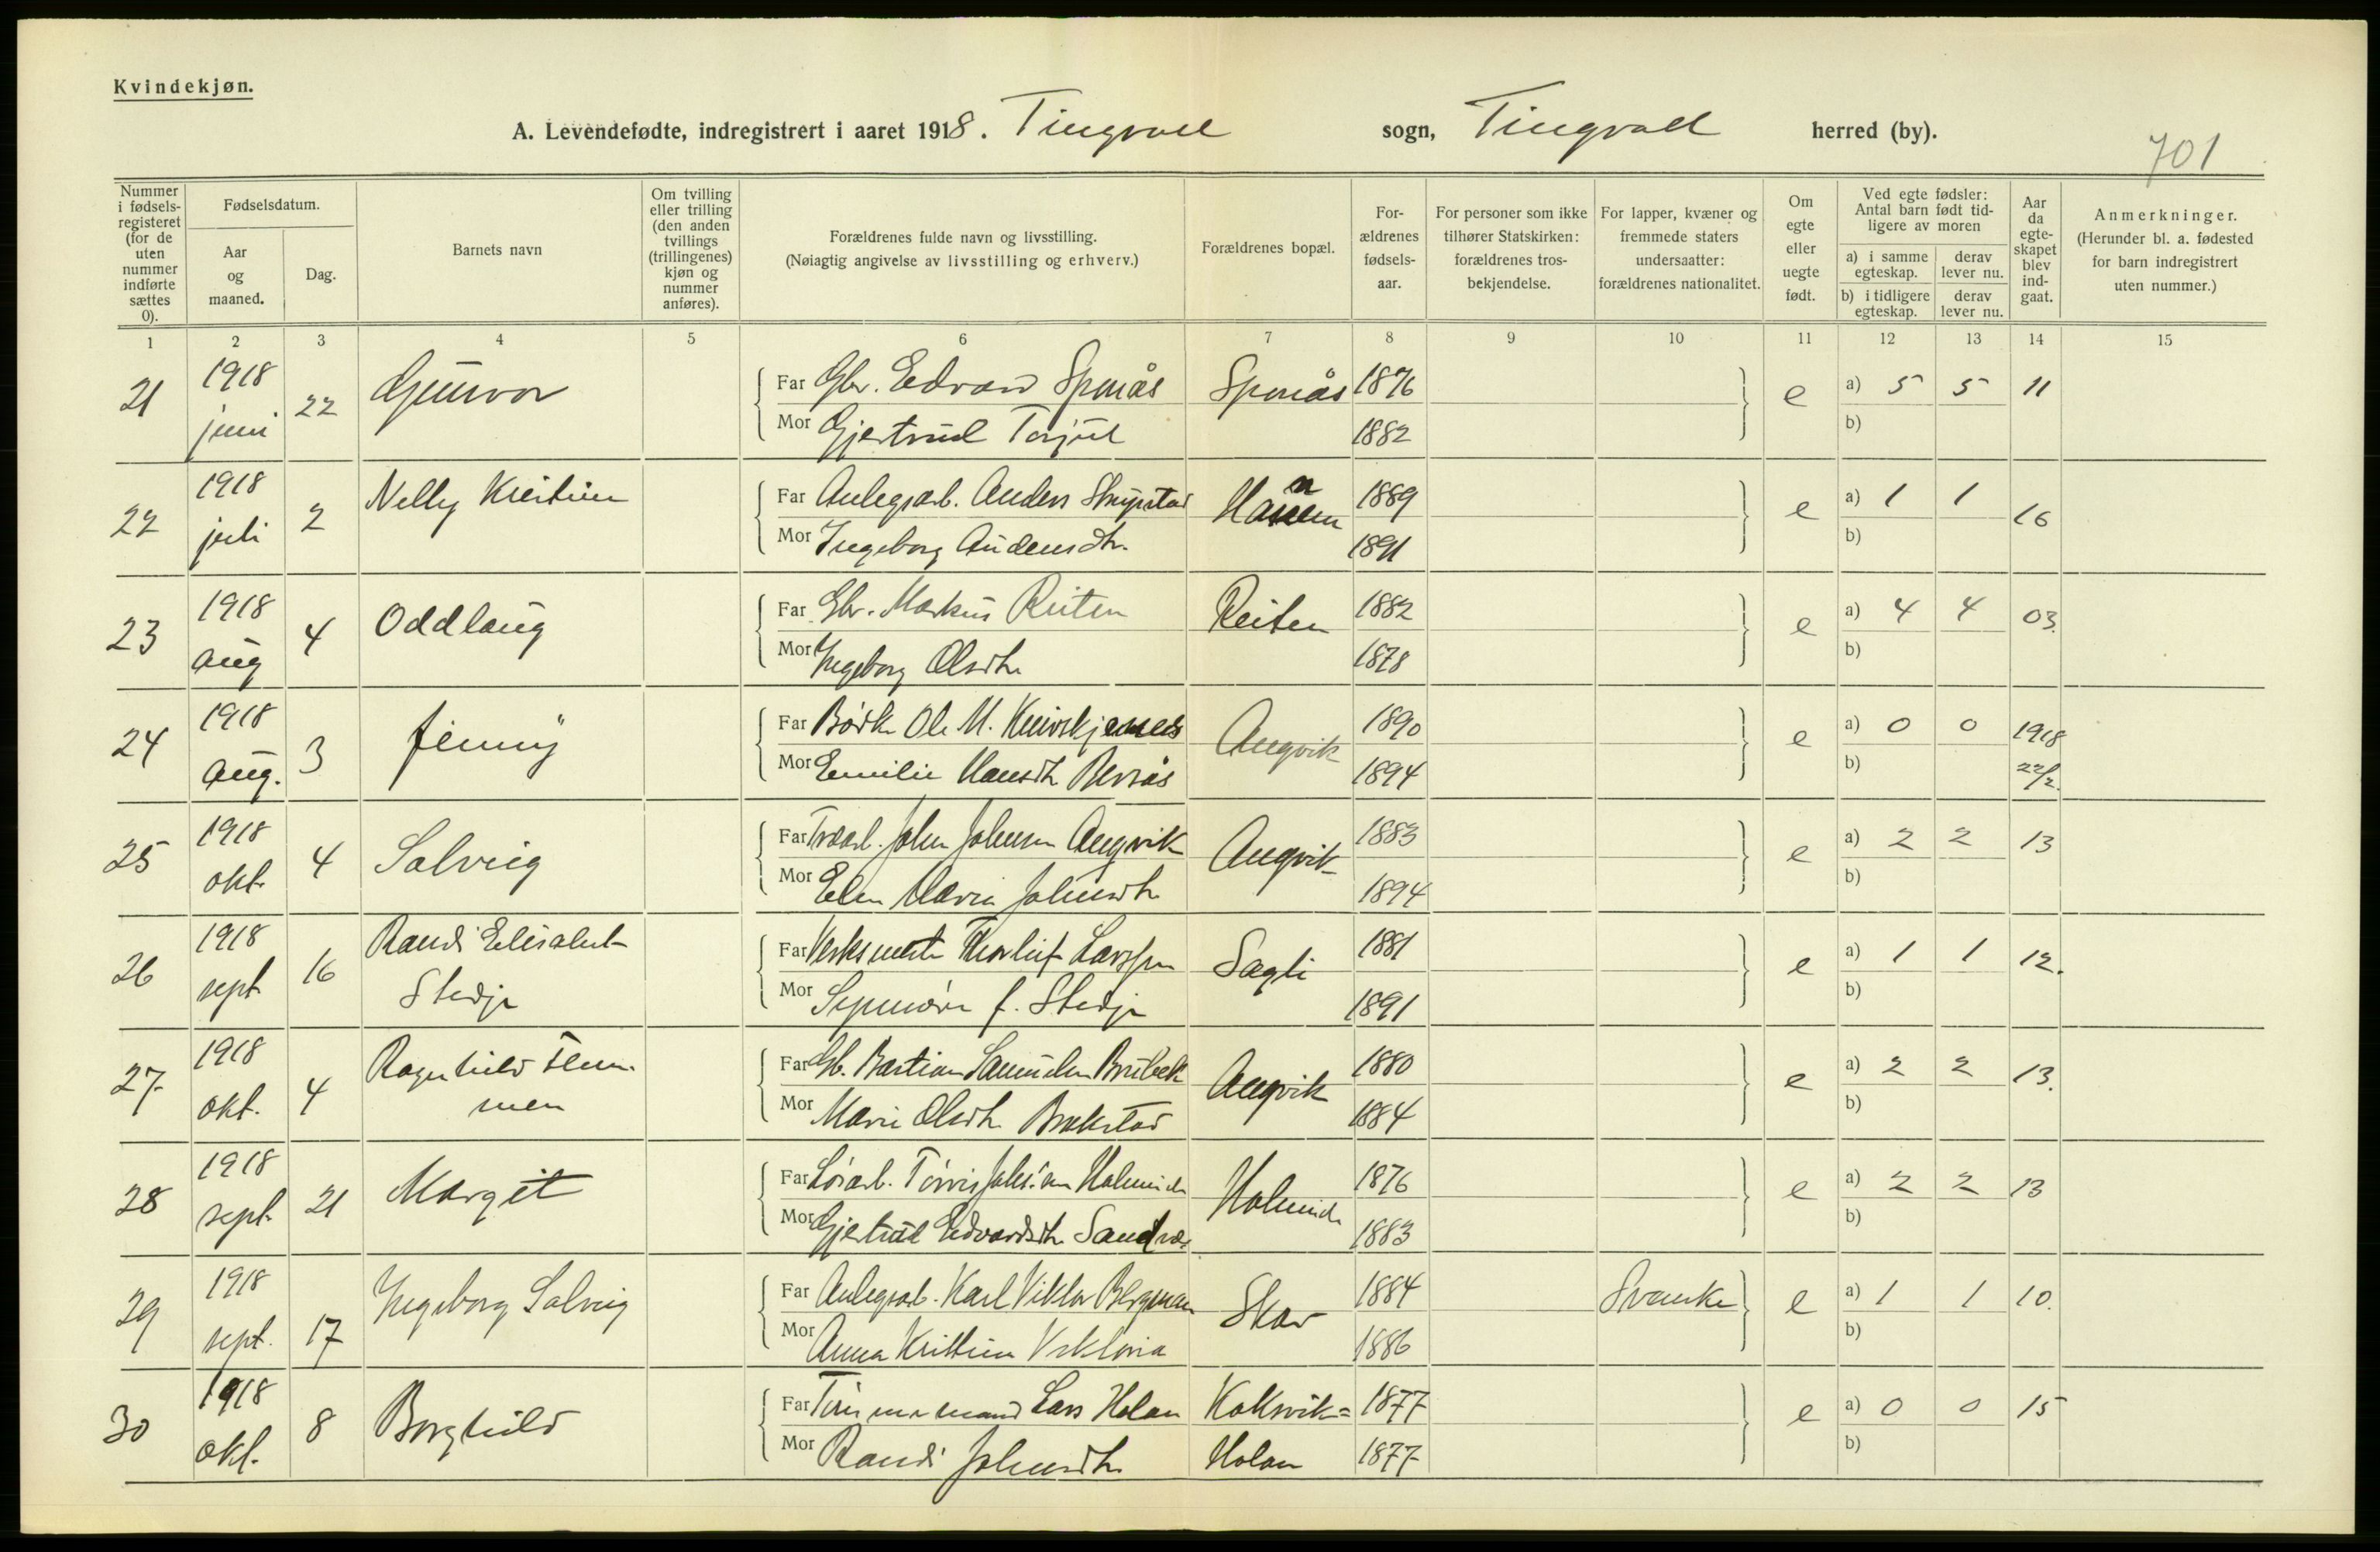 Kvindekjøn.
A. Levendefødte, indregistrert i aaret 1918. Tingvoll sogn, Tingvoll herred (by).
701
Nummer i fødselsregisteret (for de uten nummer indførte sættes 0).
Fødselsdatum.
Aar og maaned.
Dag.
Barnets navn
Om tvilling eller trilling (den anden tvillings (trillingenes) kjøn og nummer anføres).
Forældrenes fulde navn og livsstilling.
(Nøiagtig angivelse av livsstilling og erhverv.)
Forældrenes bopæl.
Forældrenes fødselsaar.
For personer som ikke tilhører Statskirken: forældrenes trosbekjendelse.
For lapper, kvæner og fremmede staters undersaatter: forældrenes nationalitet.
Om egte eller uegte født.
Ved egte fødsler: Antal barn født tidligere av moren
a) i samme egteskap.
derav lever nu.
b) i tidligere egteskap.
derav lever nu.
Aar da egteskapet blev indgaat.
Anmerkninger.
(Herunder bl. a. fødested for barn indregistrert uten nummer.)
1 2 3 4 5 6 7 8 9 10 11 12 13 14 15
21 1918 juni 22 Gunvor Far Gbr. Edvard 1876 e a) 5 5 11
Mor Gjertrud 1882 b)
22 1918 juli 2 Nelly Kristine Far Anlegsarb. Anders 1889 e a) 1 1 16
Mor Ingeborg 1891 b)
23 1918 aug 4 Oddlaug Far Gbr. Markus Reiten Reiten 1882 e a) 4 4 03.
Mor Ingeborg Olsdtr 1878 b)
24 1918 aug. 3 Jenny Far Ole M. Angvik 1890 e a) 0 0 1918
Mor Emilie Hansdtr 1894 b) 22/2.
25 1918 okt. 4 Solveig Far John Johnsen Angvik Angvik 1883 e a) 2 2 13
Mor Elen Maria Johnsdtr 1894 b)
26 1918 sept 16 Randi Elisabet Stedje Far Verksmester Thorleif Larssen Sagli 1881 e a) 1 1 12.
Mor f. Stedje 1891 b)
27 1918 okt. 4 Ragnhild Flemmen Far Bastian Angvik 1880 e a) 2 2 13.
Mor Marie Olsdtr 1884 b)
28 1918 sept. 21 Margit Far 1876 e a) 2 2 13
Mor Gjertrud Edvardsdtr 1883 b)
29 1918 sept. 17 Ingeborg Solveig Far Anlegsarb. Karl Viktor Bergman Skar 1884 Svenske e a) 1 1 10.
Mor Anna Kristina Viktoria 1886 b)
30 1918 okt. 8 Borghild Far Tømmermand Lars Holan Koksvik= 1877 e a) 0 0 15
Mor Randi Johnsdtr Holan 1877 b)